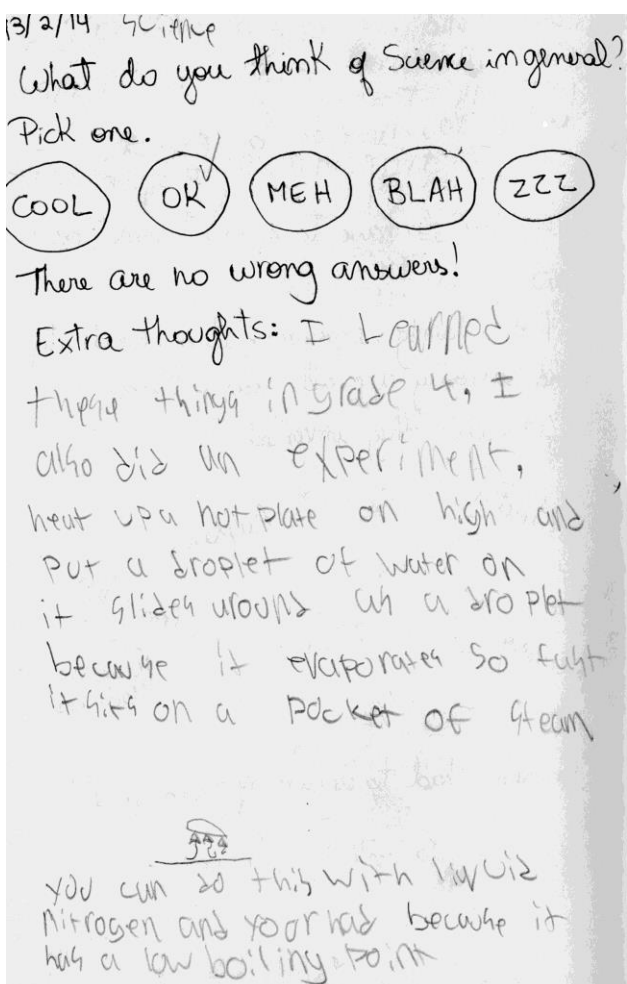 13/2/14 Science
What do you think of Science in general?
Pick one.
COOL OK ✓ MEH BLAH ZZZ
There are no wrong answers!
Extra thoughts: I Learned
these things in grade 4, I
also did an experiment,
heat up a hot plate on high and
put a droplet of water on
it slides around as a droplet
because it evaporates so fast
it sits on a pocket of steam
you can do this with liquid
Nitrogen and your had because it
has a low boiling point